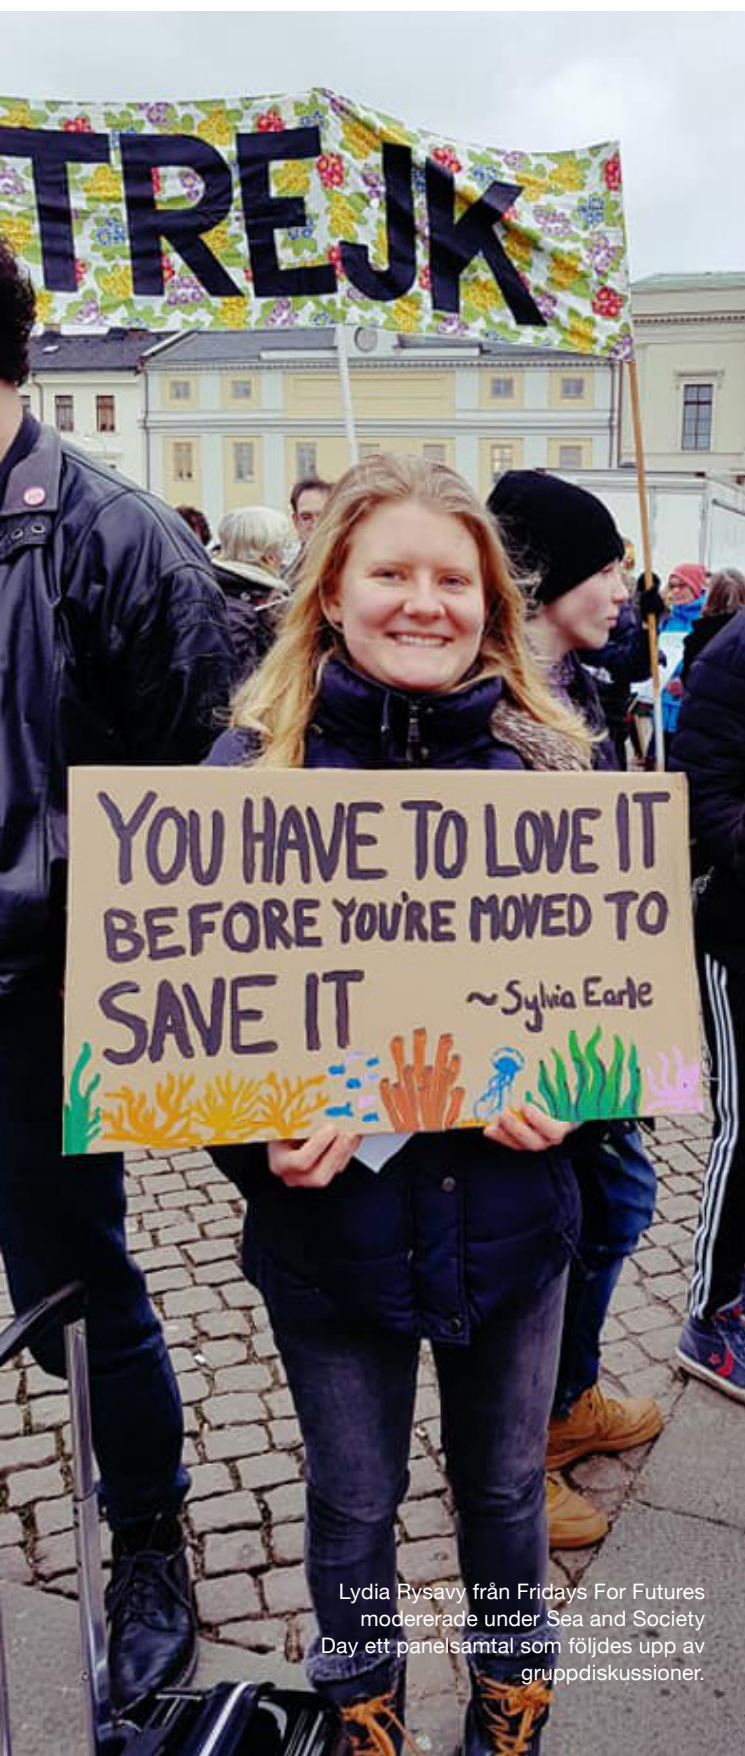 TREJK
YOU HAVE TO LOVE IT
BEFORE YOU'RE MOVED TO
SAVE IT ~Sylvia Earle
Lydia Rysavy från Fridays For Futures
modererade under Sea and Society
Day ett panelsamtal som följdes upp av
gruppdiskussioner.